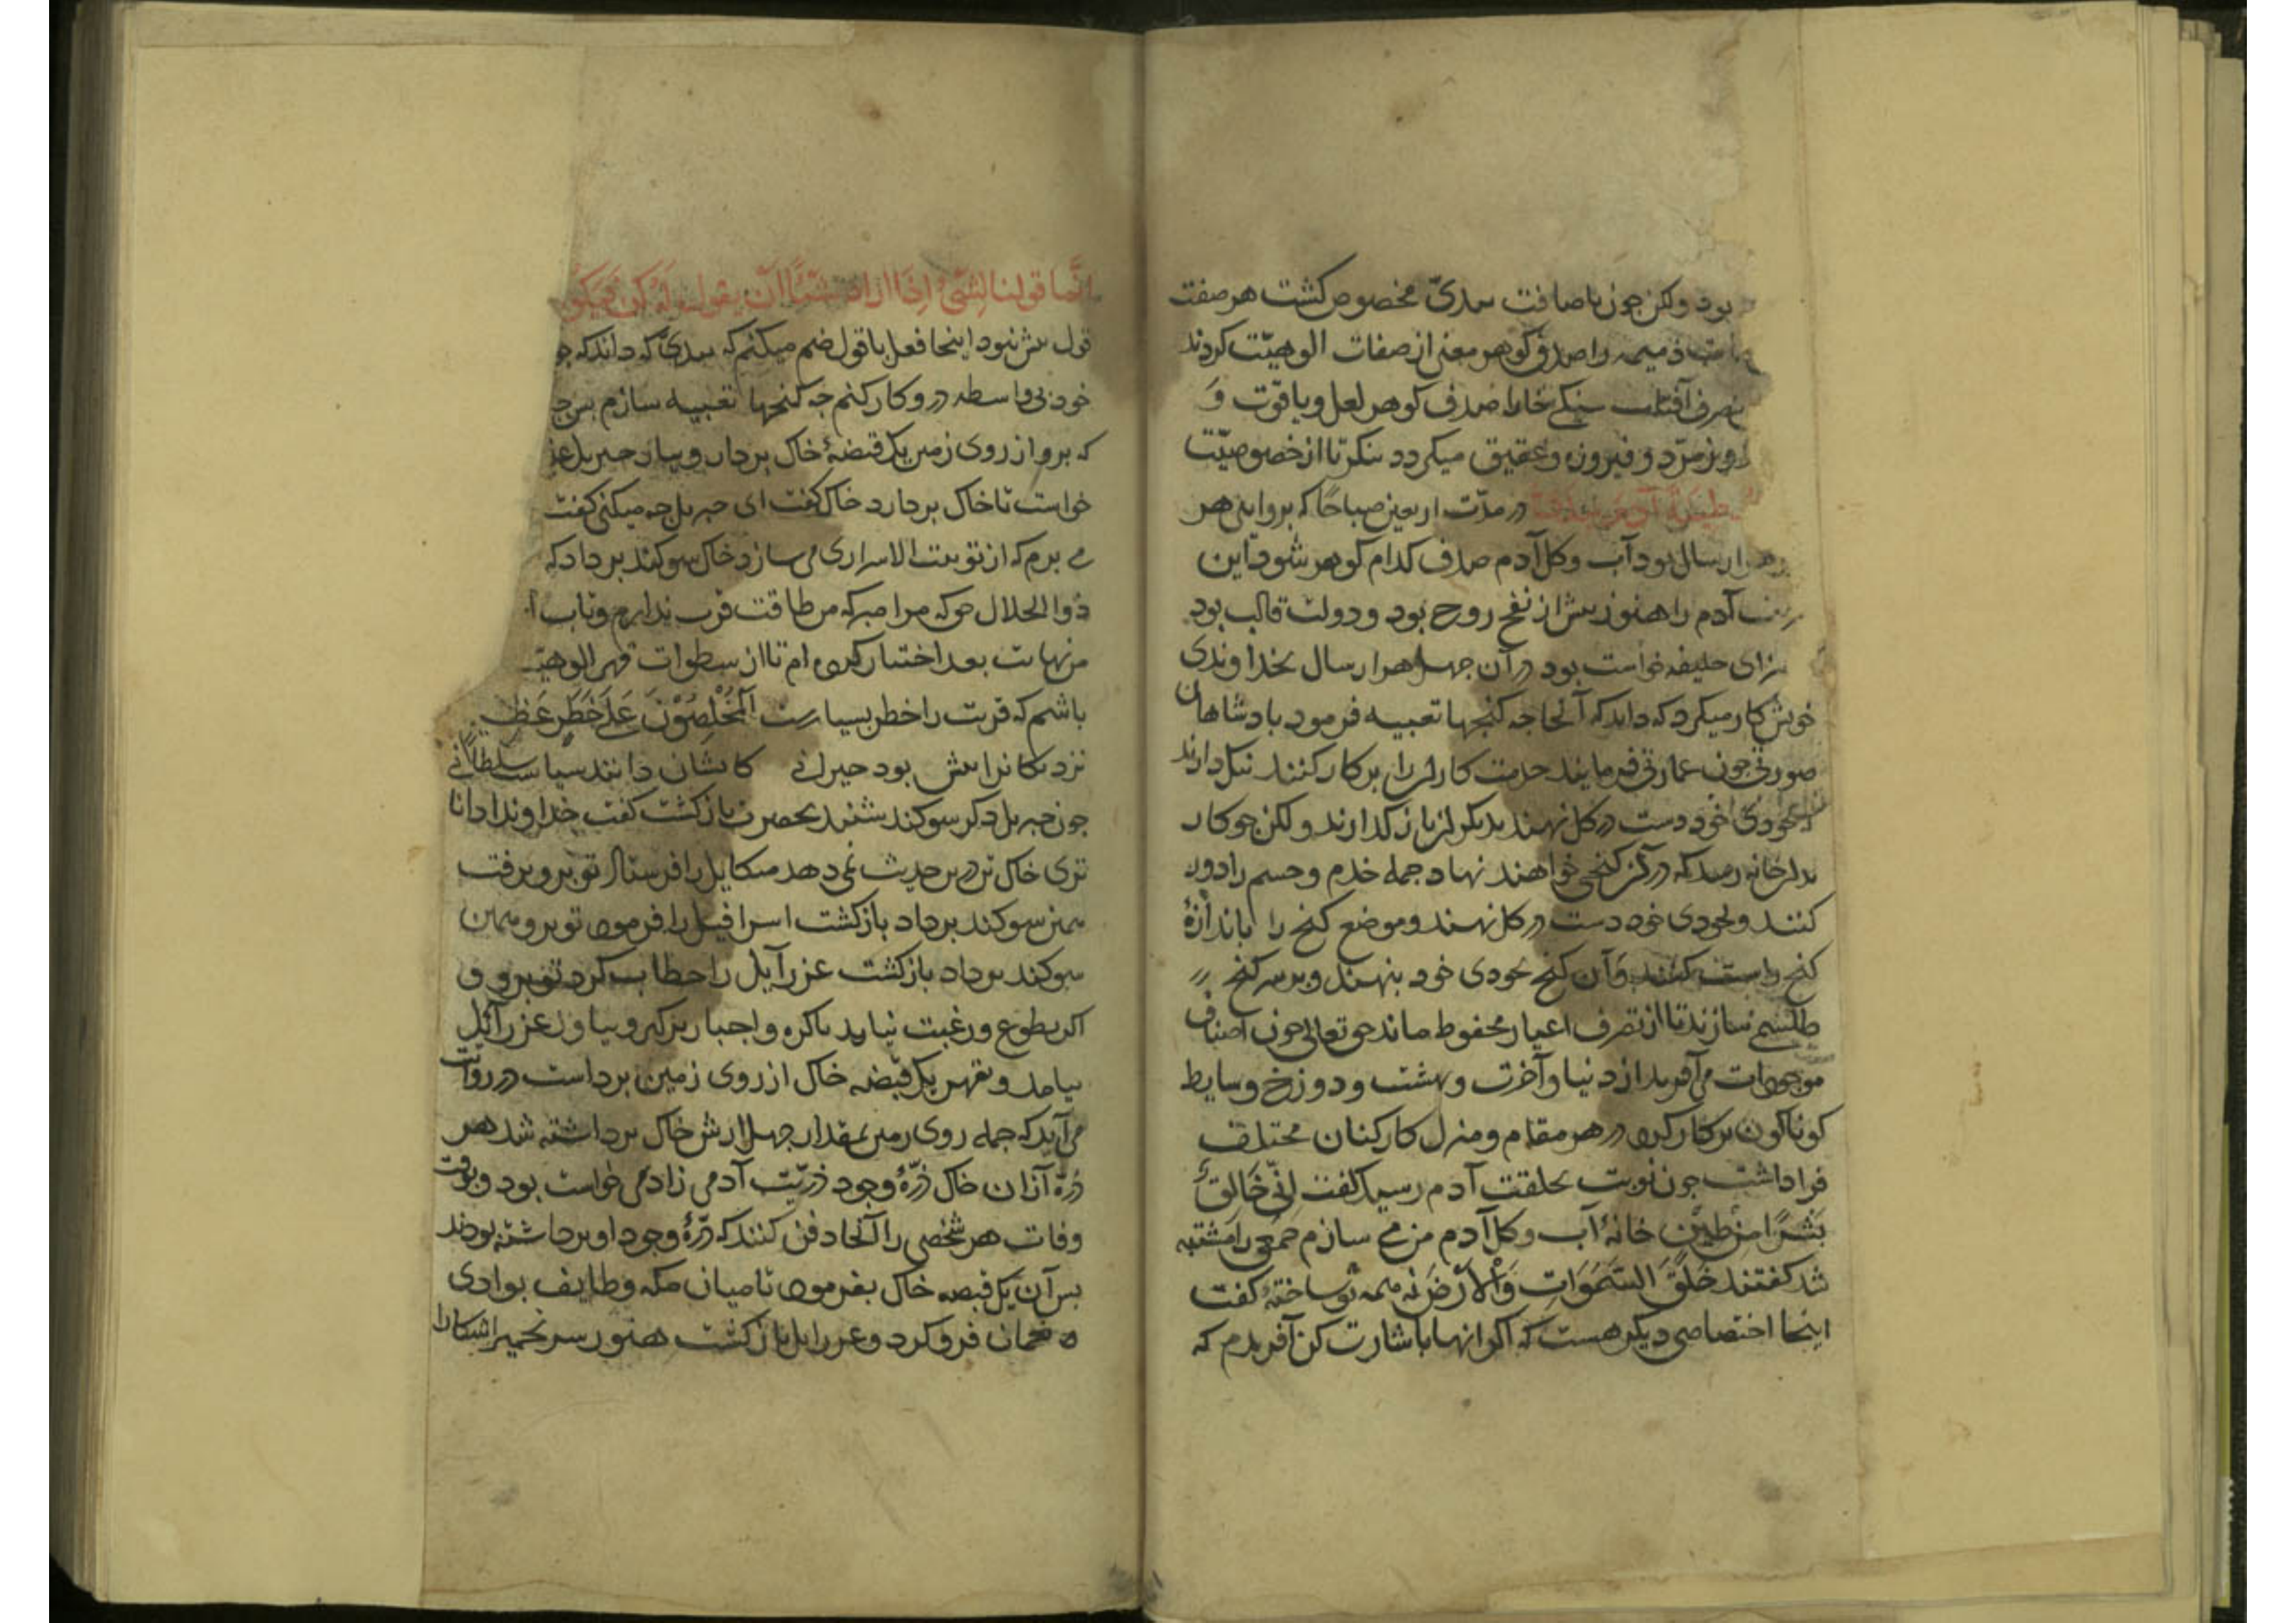 بود ولکن جون باضافت بیدیّ مخصوص کشت هر صفت
ذمیمه را صدف کوهر معنی از صفات الوهیّت کردند
آفتاب سنکے خارا صدف کوهر لعل و یاقوت وَ
و زمرّد و فیروزه و عقیق میکردد بنکر تا از خصوصیّت
در مدّت اربعین صباحًا که بروایتی هر
هزار سال بود آب و کل آدم صدف کدام کوهر شود این
آدم را هنوز بیش از نفخ روح بود و دولت قالب بود
سرای خلیفه خواست بود در آن جهل هزار سال بخداوندی
خویش کار میکرد که داند که آنجا جه کنجها تعبیه فرمود بادشاهان
صورتی جون عمارتی فرمایند خدمت کاران را بر کار کنند ننک دارند
بخودی خود دست در کل نهند بدیکران باز کذارند ولکن جو کار
بدان خانه رسد که در آن کنجی خواهند نهاد جمله خدم و حسم را دور
کنند و بخودی خود دست در کل نهند و موضع کنج را باندازهٔ
کنج راست کنند وآن کنج بخودی خود بنهند و بر سر کنج
طلسمی سازند تا از تصرف اغیار محفوظ ماند حق تعالی جون اصناف
موجودات می آفرید از دنیا و آخرت و بهشت و دوزخ وسایط
کوناکون بر کار کرد در هر مقام و منزل کارکنان مختلف
فرا داشت جون نوبت بخلقت آدم رسید کفت اِنّی خَالِقٌ
بَشَرًا مِنْ طِیْنٍ خانهٔ آب و کل آدم من می سازم جمعی را مشتبه
شد کفتند خَلَقَ السَّمَوَاتِ وَالْاَرْضَ نه همه تو ساختهٔ کفت
اینجا اختصاصی دیکر هست که اکر انها باشارت کن آفریدم که
انَّما قولنا لِشَیْءٍ اِذَا اراد شَیْئًا اَنْ یقول لَهُ کن فیکو
قول بیش نبود اینجا فعل با قول ضم میکنم که بیدیّ که داند که جو
خود بی واسطه درو کار کنم جه کنجها تعبیه سازم بس جـ
که برو از روی زمین یک قبضهٔ خاک بردار و بیار جبریل
خواست تا خاک بردارد خاک کفت ای جبریل جه میکنی کفت
می برم که از تو بیت الاسراری می سازد خاک سوکند برداد که
ذوالجلال حق که مرا مبر که من طاقت قرب ندارم و تاب
من نهایت بعد اختیار کرده ام تا از سطوات قهر الوهیّـ
باشم که قربت را خطر بسیارست اَلْمُخْلِصُوْنَ عَلَی خَطَرٍ عَظِیـ
نزدیکانرا بیش بود حیرانی کایشان دانند سیاست سلطانی
جون جبریل ذکر سوکند شنید بحضرت باز کشت کفت خداوندا دانا
تری خاک تن درین حدیث نمی دهد میکایل را فرستاد تو برو برفت
همین سوکند برداد باز کشت اسرافیل را فرمود تو برو همین
سوکند برداد باز کشت عزرآیل را خطاب کرد تو برو و
اکر بطوع و رغبت نیاید باکره و اجبار برکیر و بیاور عزرآئل
بیامد و بقهر یک قبضه خاک از روی زمین برداست در روایت
می آید که جمله روی زمین بمقدار جهل ارش خاک برداشته شد هر
ذرّه از آن خاک ذرّهٔ وجود ذریّت آدمی زاد می خواست بود و بوقت
وفات هر شخصی را آنجا دفن کنند که ذرّهٔ وجود او برداشته بودند
بس آن یک قبضه خاک بفرمود تا میان مکه و طایف بوادی
نعمان فرو کرد و عزرایل باز کشت هنوز سر تخمیر اشکارا